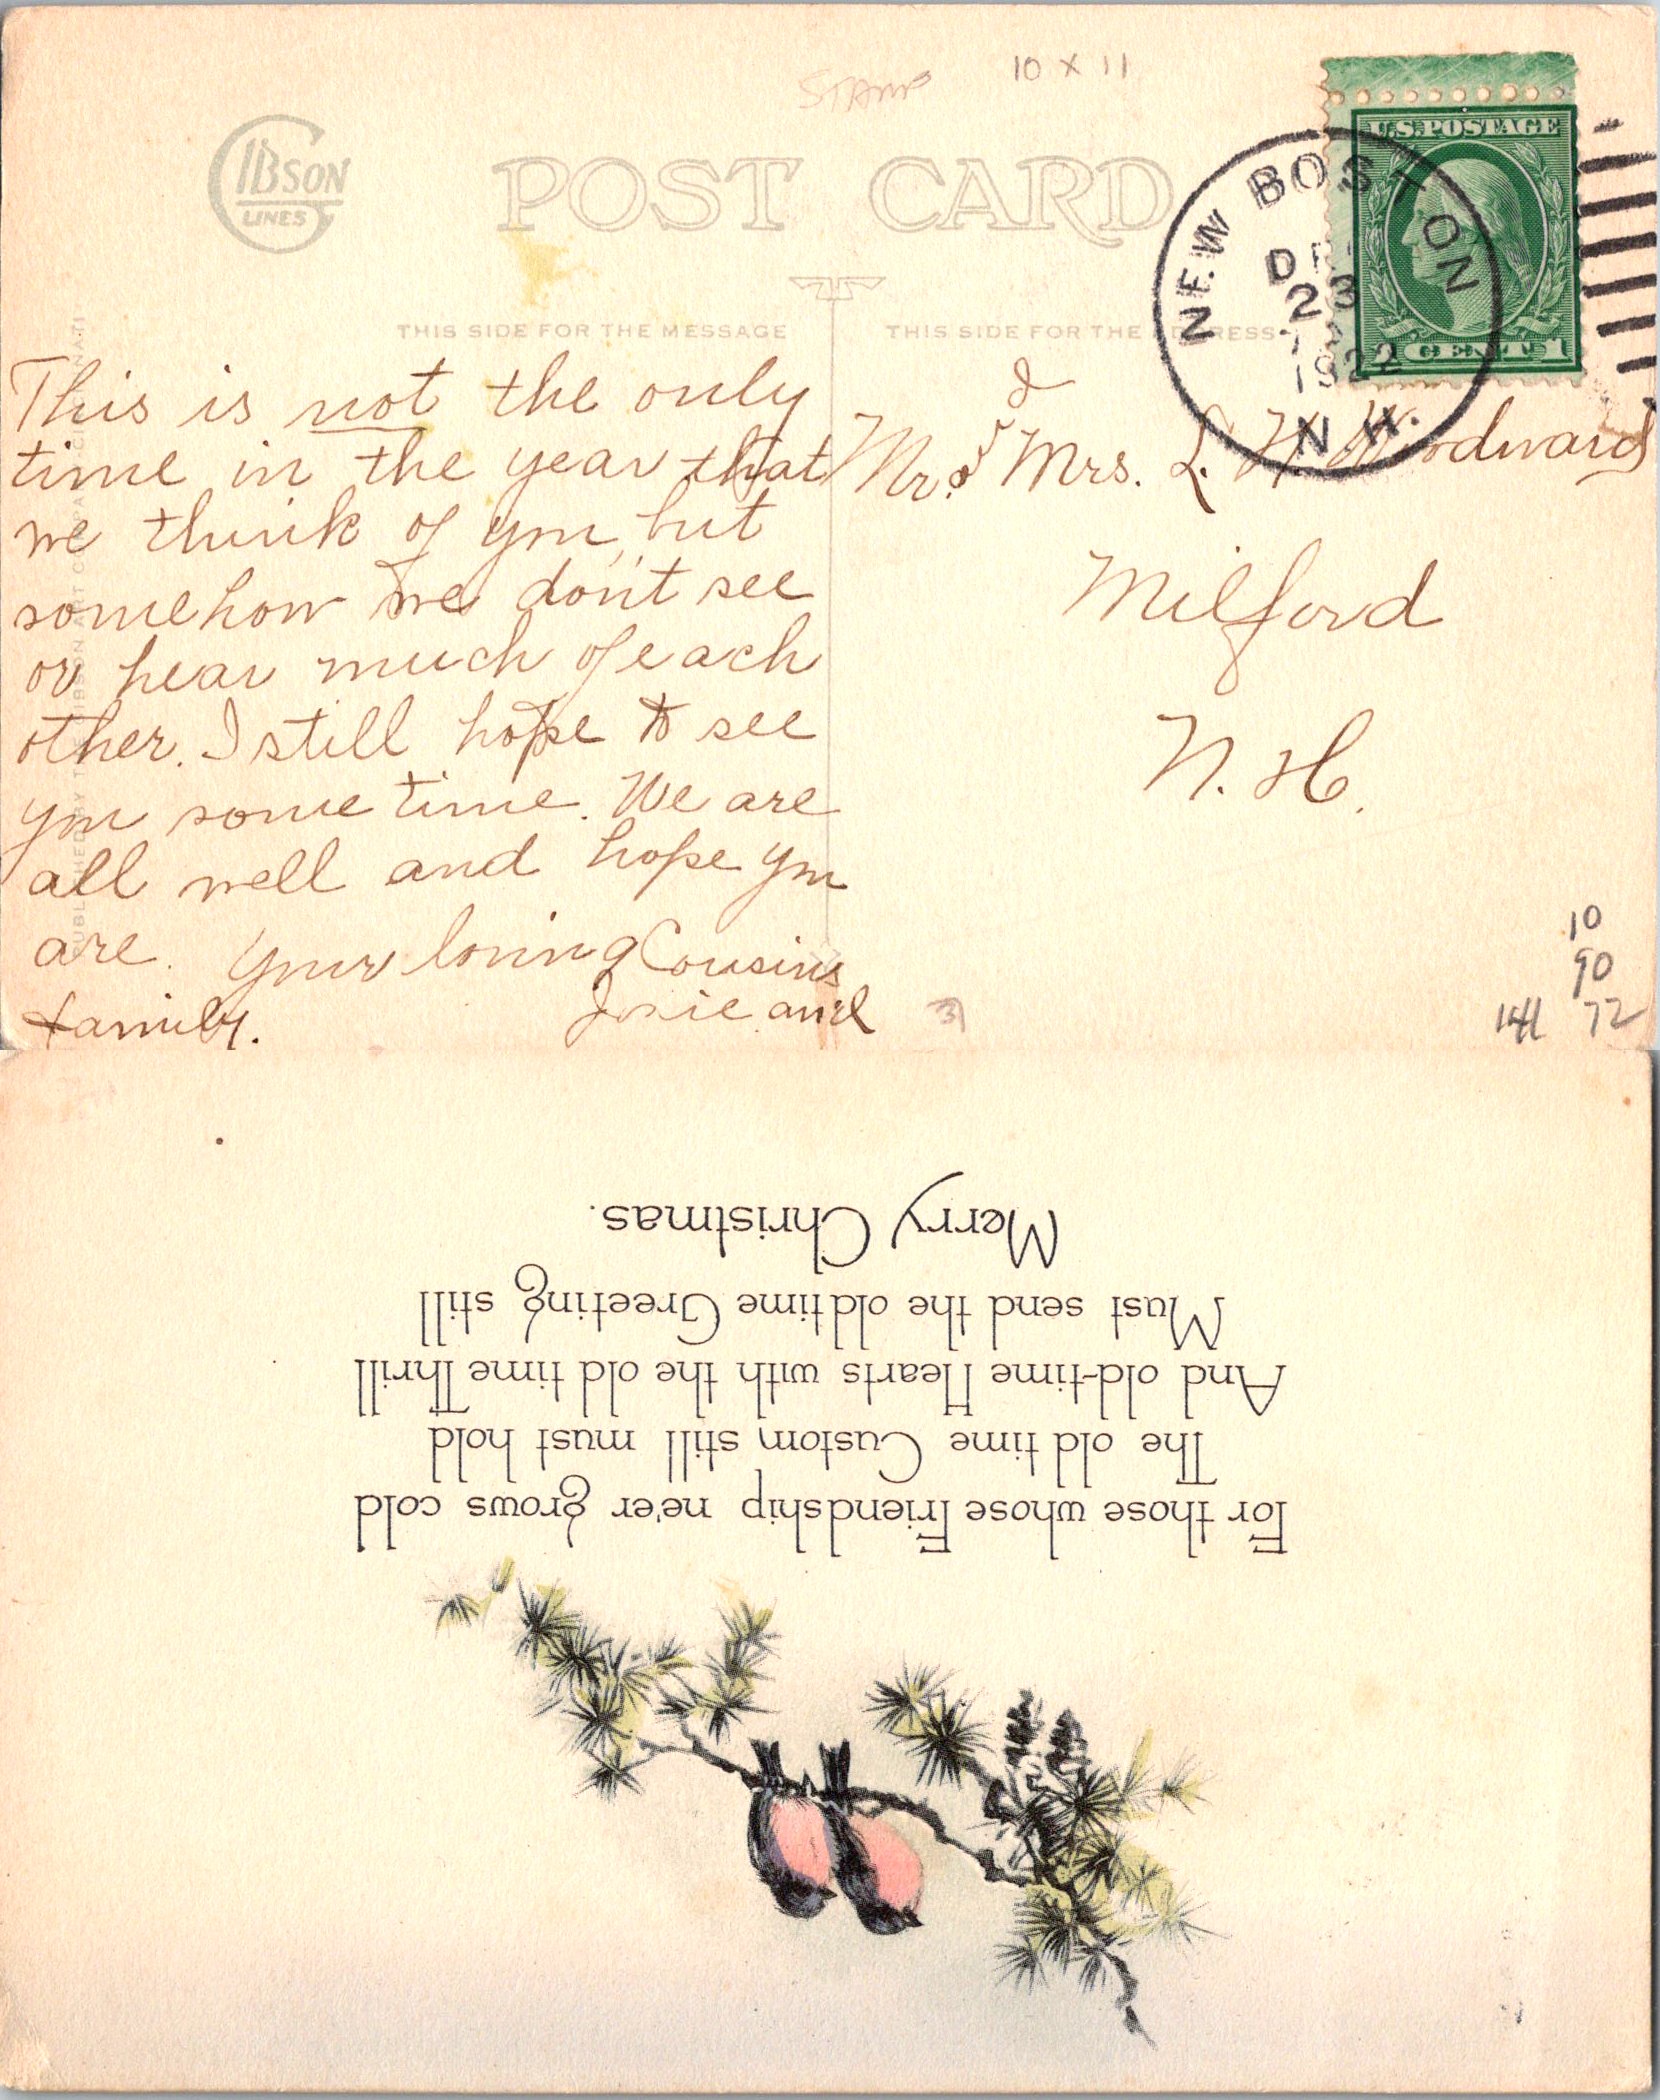 STAMP
10 X 11
GIBSON
LINES
POST CARD
U.S. POSTAGE
1 CENTS 1
NEW BOSTON
DE
23
1922
N.H.
THIS SIDE FOR THE MESSAGE
THIS SIDE FOR THE ADDRESS
This is not the only
time in the year that
we think of you, but
somehow we don't see
or hear much of each
other. I still hope to see
you some time. We are
all well and hope you
are. Your loving Cousins
Josie and
family.
Mr. & Mrs. L. H. Woodward
Milford
N. H.
PUBLISHED BY THE GIBSON ART COMPANY, CINCINNATI
31
10
90
72
For those whose Friendship ne'er grows cold
The old time Custom, still must hold
And old-time Hearts with the old time Thrill
Must send the old time Greeting still
Merry Christmas.